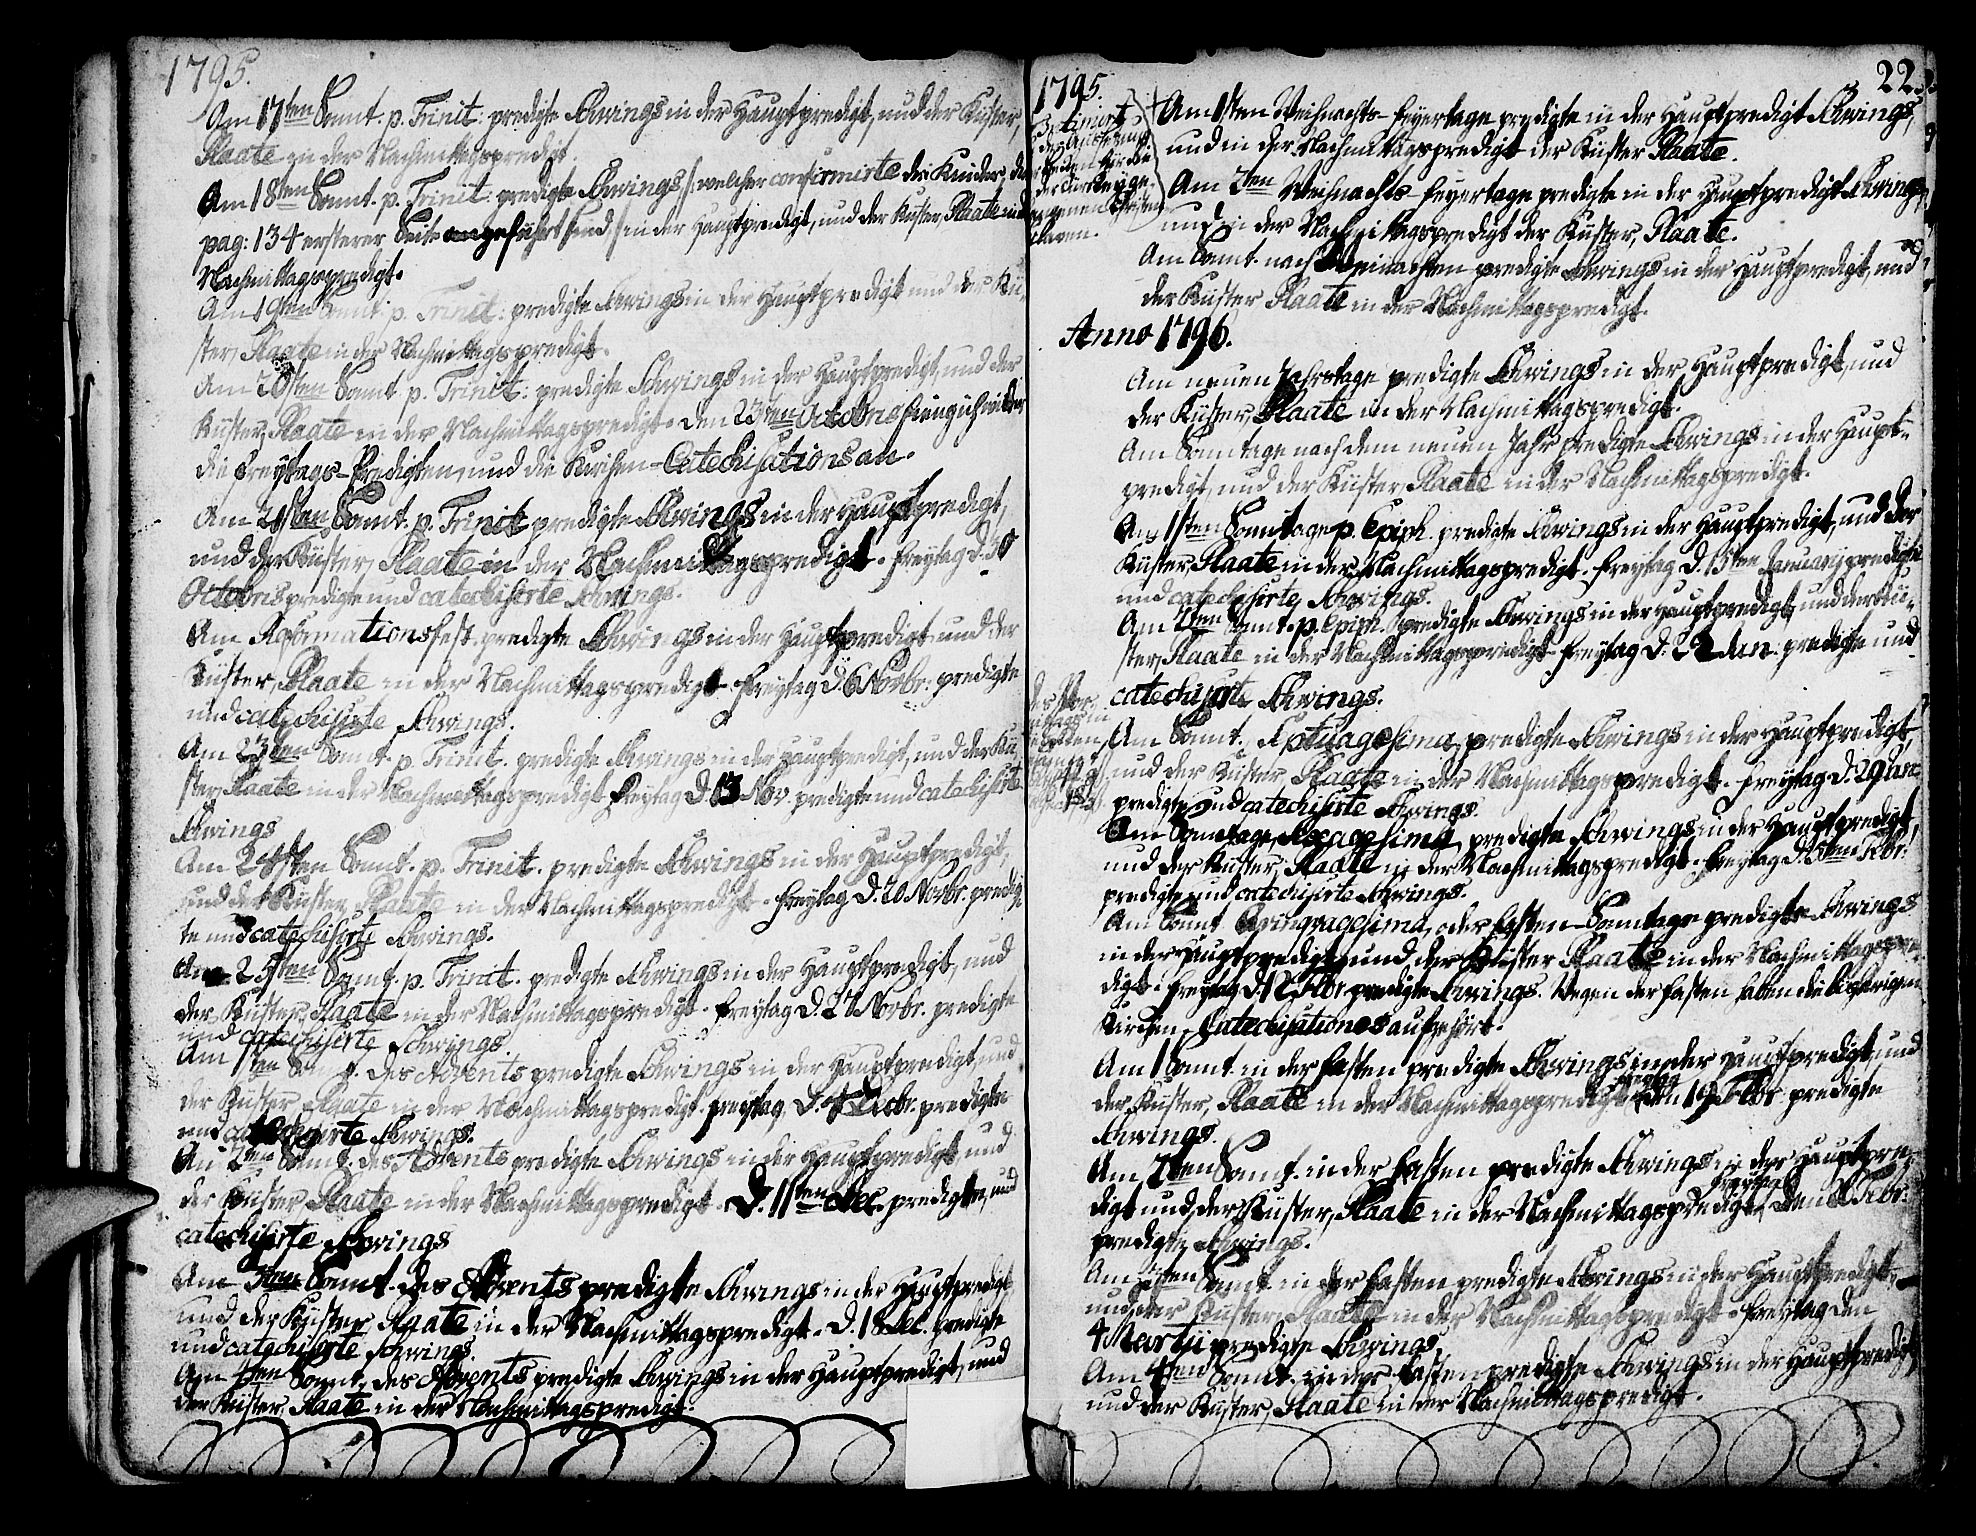 1795.
Am 17ten Sonnt. p. Trinit: predigte Schwings in der Hauptpredigt, und der Küster,
Plaate in der Nachmittagspredigt.
Am 18ten Sonnt. p. Trinit: predigte Schwings /: welcher confirmirte die Kinder, die
pag: 134 ersterer Seite angeführt sind :/ in der Hauptpredigt, und der Küster, Plaate in der
Nachmittagspredigt.
Am 19ten Sonnt. p. Trinit: predigte Schwings in der Hauptpredigt und der Kü-
ster, Plaate in der Nachmittagspredigt.
Am 20sten Sonnt. p. Trinit: predigte Schwings in der Hauptpredigt, und der
Küster, Plaate in der Nachmittagspredigt. Den 23ten Octobris fieng ich wieder
die Freytags-Predigten, und die Kirchen-Catechisations an.
Am 21sten Sonnt. p. Trinit predigte Schwings in der Hauptpredigt,
und der Küster, Plaate in der Nachmittagspredigt. Freytag d. 30
Octobris predigte und catechisirte Schwings.
Am Reformationsfest predigte Schwings in der Hauptpredigt und der
Küster, Plaate in der Nachmittagspredigt. Freytag d. 6 Novbr: predigte
und catechisirte Schwings.
Am 23ten Sonnt. p. Trinit. predigte Schwings in der Hauptpredigt, und der Kü
ster, Plaate in der Nachmittagspredigt. Freytag d. 13 Nov. predigte und catechisirte
Schwings
Am 24sten Sonnt. p. Trinit. predigte Schwings in der Hauptpredigt,
und der Küster, Plaate in der Nachmittagspredigt. Freytag d. 20 Novbr. predig
te und catechisirte Schwings.
Am 25sten Sonnt. p. Trinit. predigte Schwings in der Hauptpredigt, und
der Küster, Plaate in der Nachmittagspredigt. Freytag d. 27 Novbr. predigte
und catechisirte Schwings
Am 1sten Sonnt. des Advents predigte Schwings in der Hauptpredigt, und
der Küster, Plaate in der Nachmittagspredigt. Freytag, d. 4 Decbr. predigte
und catechisirte Schwings.
Am 2ten Sonnt. des Advents predigte Schwings in der Hauptpredigt, und
der Küster, Plaate in der Nachmittagspredigt. D. 11ten Dec. predigte, und
catechisirte Schwings
Am 3ten Sonnt. des Advents predigte Schwings in der Hauptpredigt,
und der Küster, Plaate in der Nachmittagspredigt. D. 18 Dec. predigte
und catechisirte Schwings.
Am 4ten Sonnt. des Advents predigte Schwings in der Hauptpredigt, und
der Küster, Plaate in der Nachmittagspredigt.
1795.
22
Am 1sten Weihnachts-Feyertage predigte in der Hauptpredigt Schwings,
und in der Nachmittagspredigt der Küster Plaate.
Am 2ten Weihnachts-Feyertage predigte in der Hauptpredigt Schwings,
und in der Nachmittagspredigt der Küster, Plaate.
Am Sonnt. nach Weinachten predigte Schwings in der Hauptpredigt, und
der Küster Plaate in der Nachmittagspredigt.
Anno 1796.
Am neuen Jahrstage predigte Schwings in der Hauptpredigt, und
der Küster, Plaate in der Nachmittagspredigt.
Am Sonntage nach dem neuen Jahr predigte Schwings in der Haupt-
predigt, und der Küster, Plaate in der Nachmittagspredigt.
Am 1sten Sonntage p. Epiph. predigte Schwings in der Hauptpredigt, und der
Küster, Plaate in der Nachmittagspredigt. Freytag d. 15ten January predigte
und catechisirte Schwings.
Am 2ten Sonnt. p. Epiph. predigte Schwings in der Hauptpredigt, und der Kü-
ster, Plaate in der Nachmittagspredigt. Freytag d. 22 Jan. predigte und
catechisirte Schwings.
Am Sonnt. Septuagesima, predigte Schwings in der Hauptpredigt,
und der Küster, Plaate in der Nachmittagspredigt. Freytag d. 29 Jan:
predigte und catechisirte Schwings.
Am Sonntage, Sexagesima, predigte Schwings in der Hauptpredigt,
und der Küster, Plaate in der Nachmittagspredigt. Freytag d. 5ten Febr:
predigte und catechisirte Schwings.
Am Sonnt Quinquagesima, oder Fasten-Sonntage predigte Schwings
in der Hauptpredigt, und der Küster Plaate in der Nachmittagspre-
digt. Freytag d. 12 Febr. predigte Schwings. Wegen der Fasten haben die bisherigen
Kirchen-Catechisationes aufgehört.
Am 1 Sonnt. in der Fasten predigte Schwings in der Hauptpredigt, und
der Küster, Plaate in der Nachmittagspredigt. Freytag den 19 Febr predigte
Schwings.
Am 2ten Sonnt. in der Fasten predigte Schwings in der Hauptpre-
digt und der Küster, Plaate in der Nachmittagspredigt. Freytag den Febr:
predigte Schwings.
Am 3ten Sonnt. in der Fasten predigte Schwings in der Hauptpredigt,
und der Küster, Plaate in der Nachmittagspredigt. Freytag den
4 Martii predigte Schwings.
Am 4ten Sonnt. in der Fasten predigte Schwings in der Hauptpredigt,
und der Küster, Plaate in der Nachmittagspredigt.